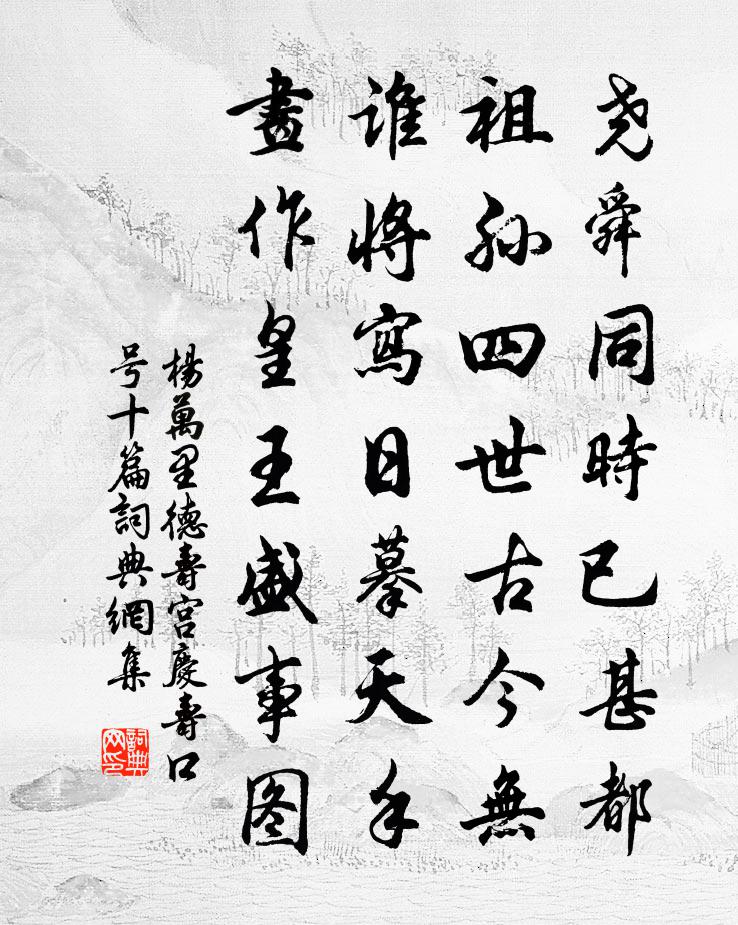 尧舜同時已甚都
祖孙四世古今無
谁將寫日摹天手
畫作皇王盛事图
楊萬里德壽宫慶壽口
号十篇詞典網集
詞典
网印